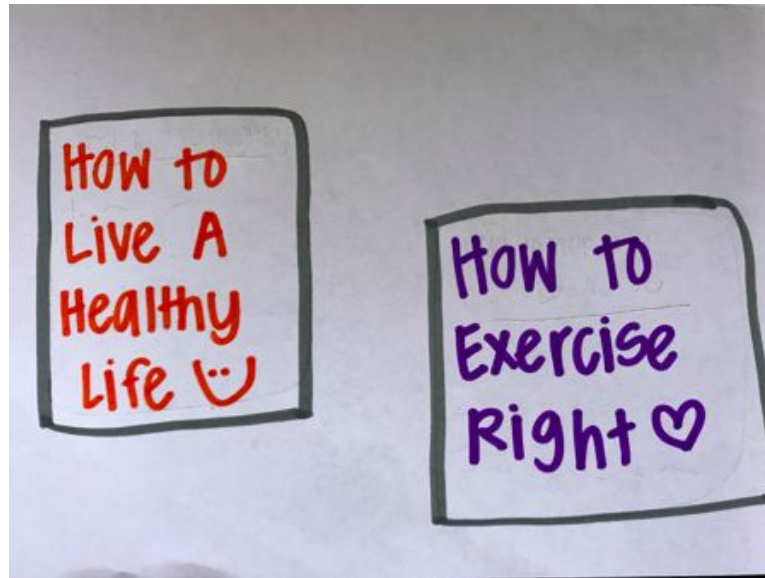 How to
Live A
Healthy
Life
How to
Exercise
Right